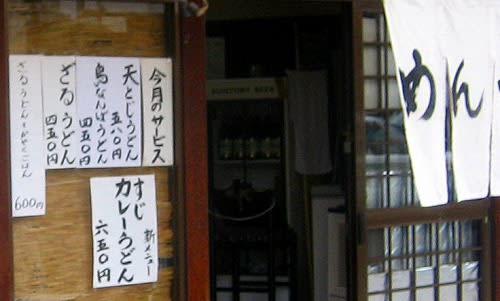 今月のサービス
天とじうどん
五八〇円
鳥なんばうどん
四五〇円
ざるうどん
四五〇円
ざるうどん+かやくごはん
600円
新メニュー
すじ
カレーうどん
六五〇円
SUNTORY BEER
めん